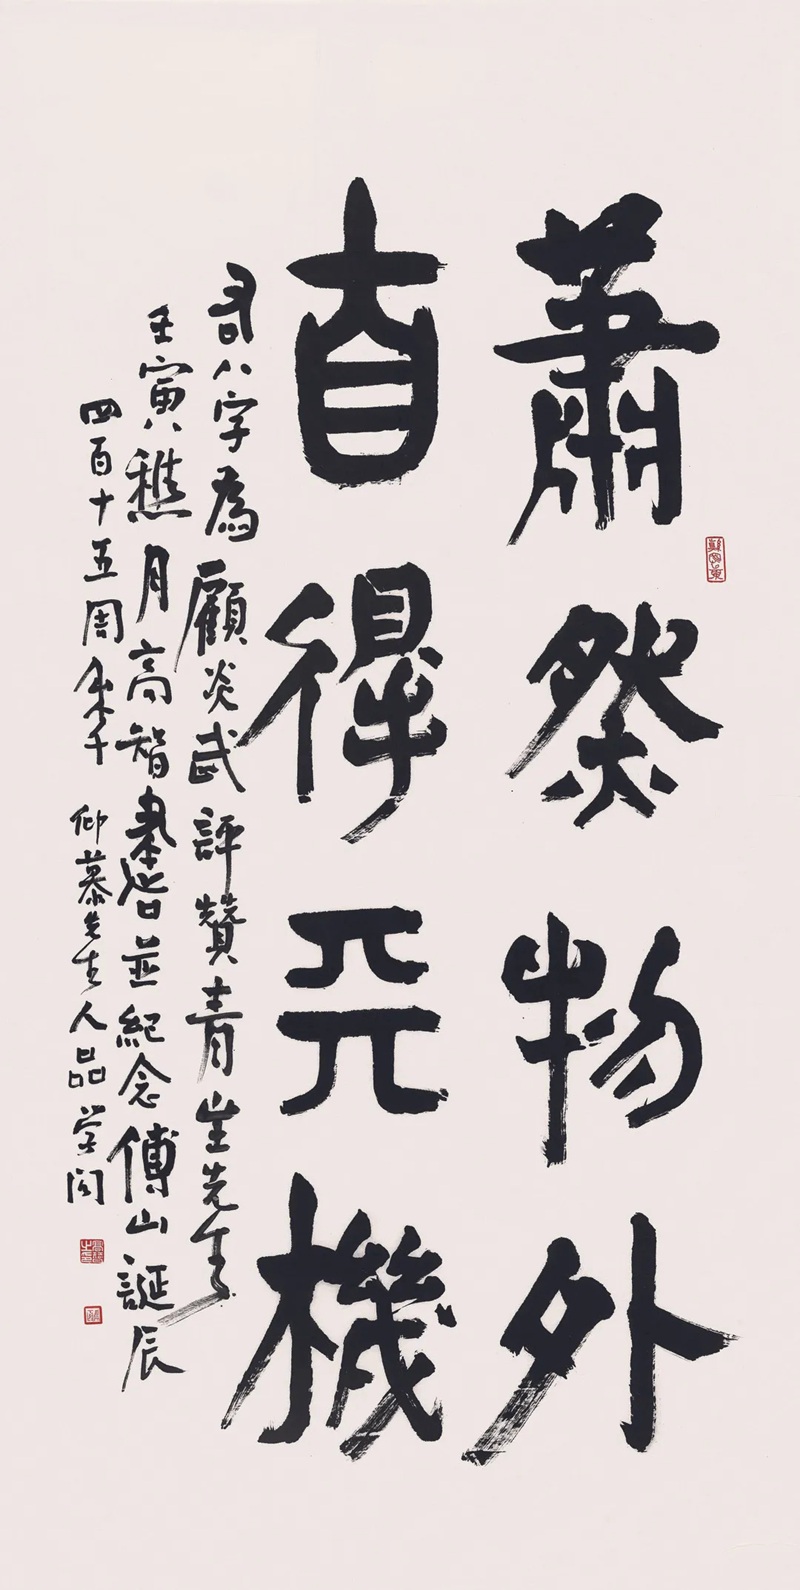 蕭然物外
自得天機
右八字為顧炎武評贊青主先生
壬寅穐月高智書並紀念傅山誕辰
四百十五周年 仰慕先生人品学问